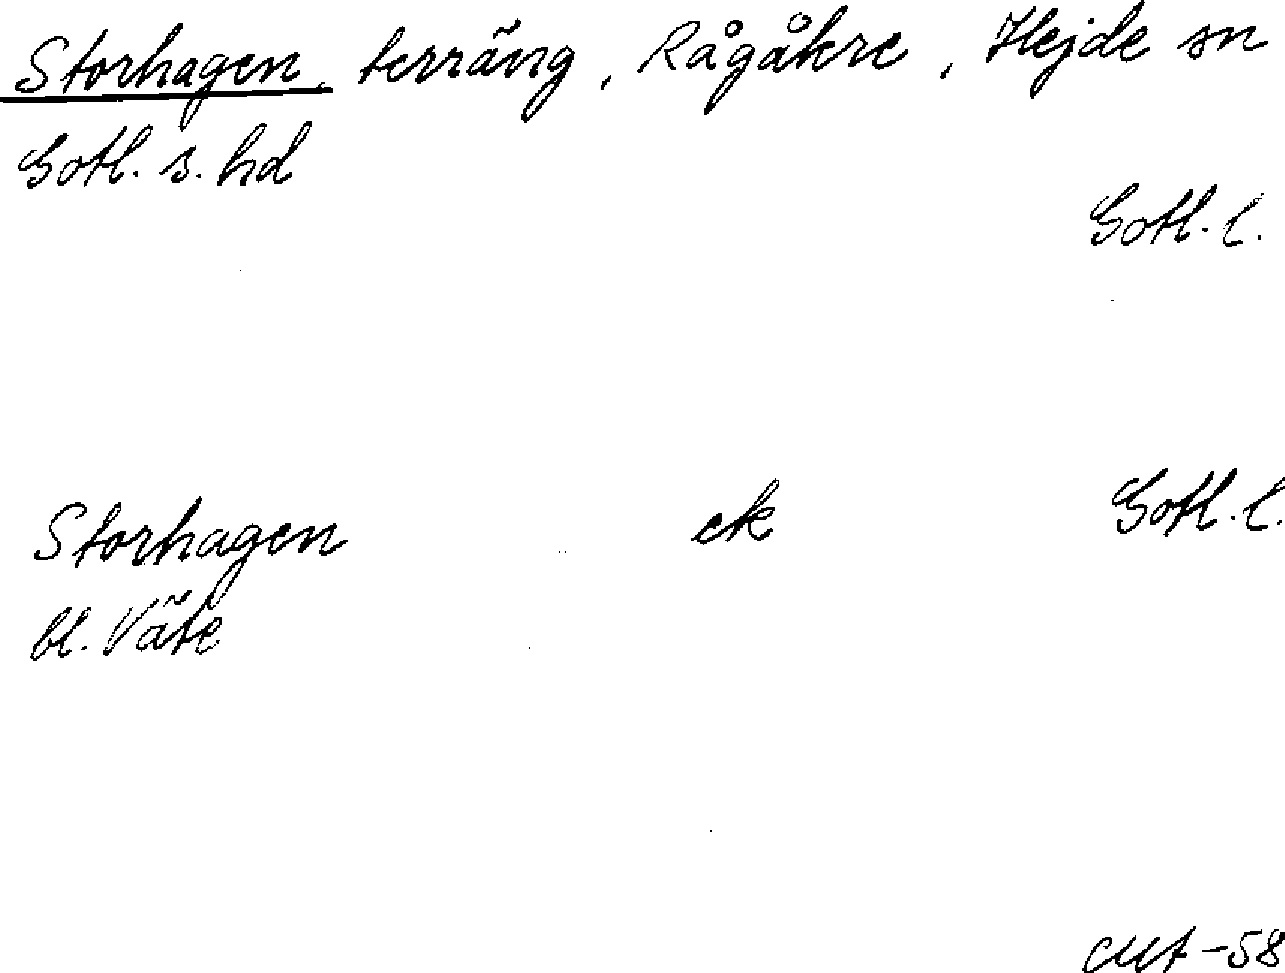 Storhagen, terräng, Rågåkre, Hejde sn
Gotl. s. hd
Gotl. l.
Storhagen ek Gotl. l.
bl. Väte
-58